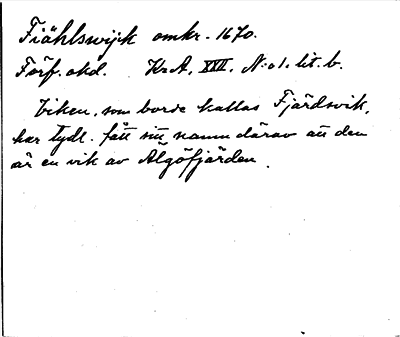 Fiählswijk omkr. 1670.
Förf. okd. Kr.A. XXII. N:o 1. lit. b.
Viken, som borde kallas Fjärdsvik,
har tydl. fått sitt namn därav att den
är en vik av Älgöfjärden.